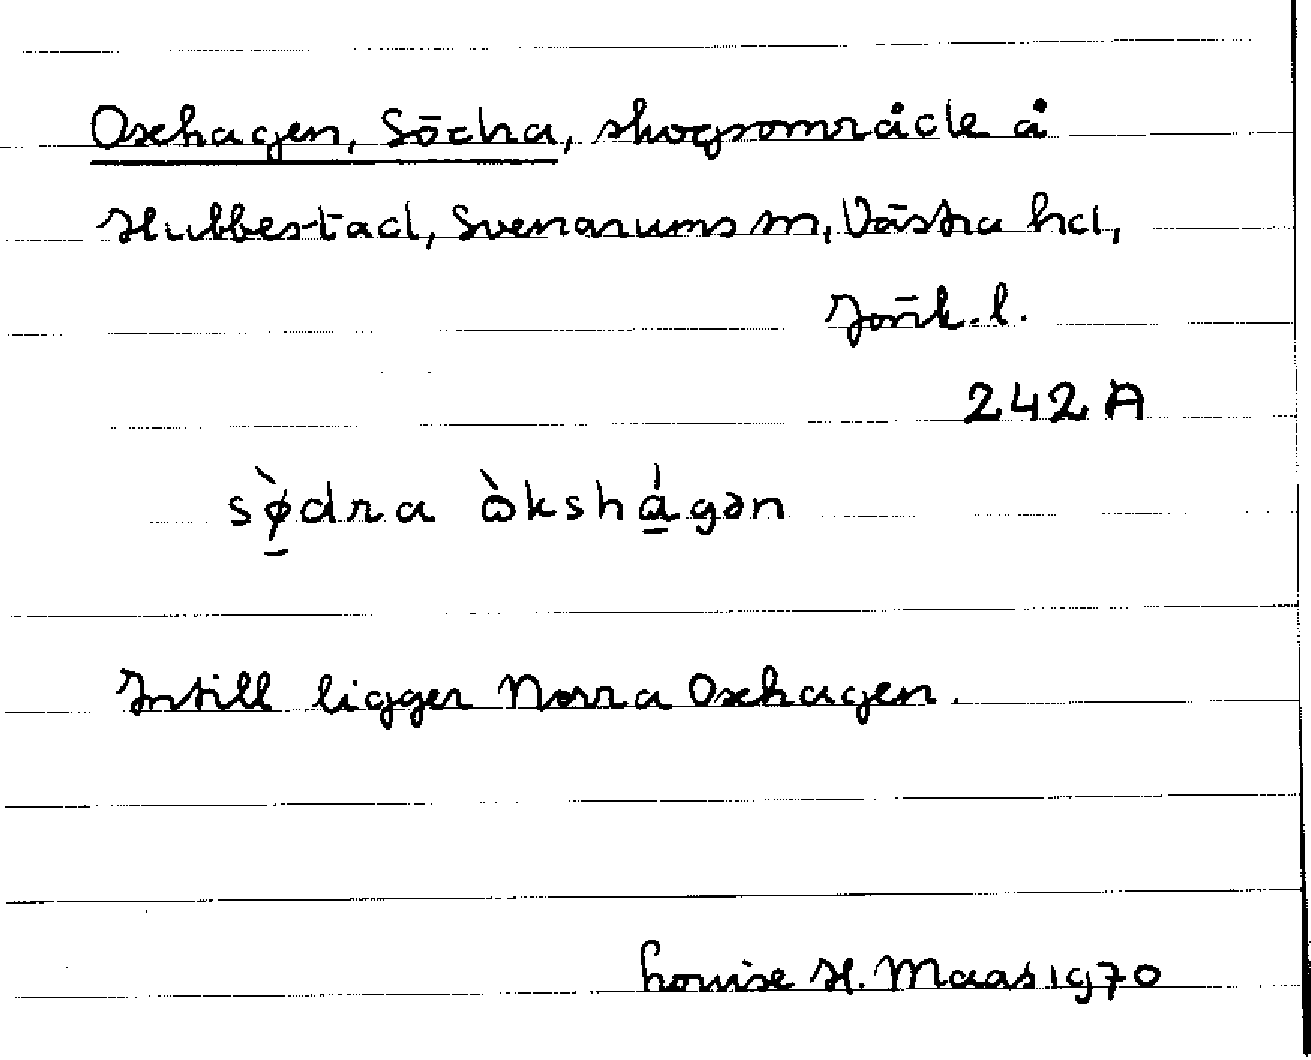 Oxhagen, Södra, skogsområde å
Hubbestad, Svenarums sn, Västra hd,
Jönk. l.
242 A
sø̠̀dra òkshá̠gən
Intill ligger Norra Oxhagen.
Louise H. Maas 1970